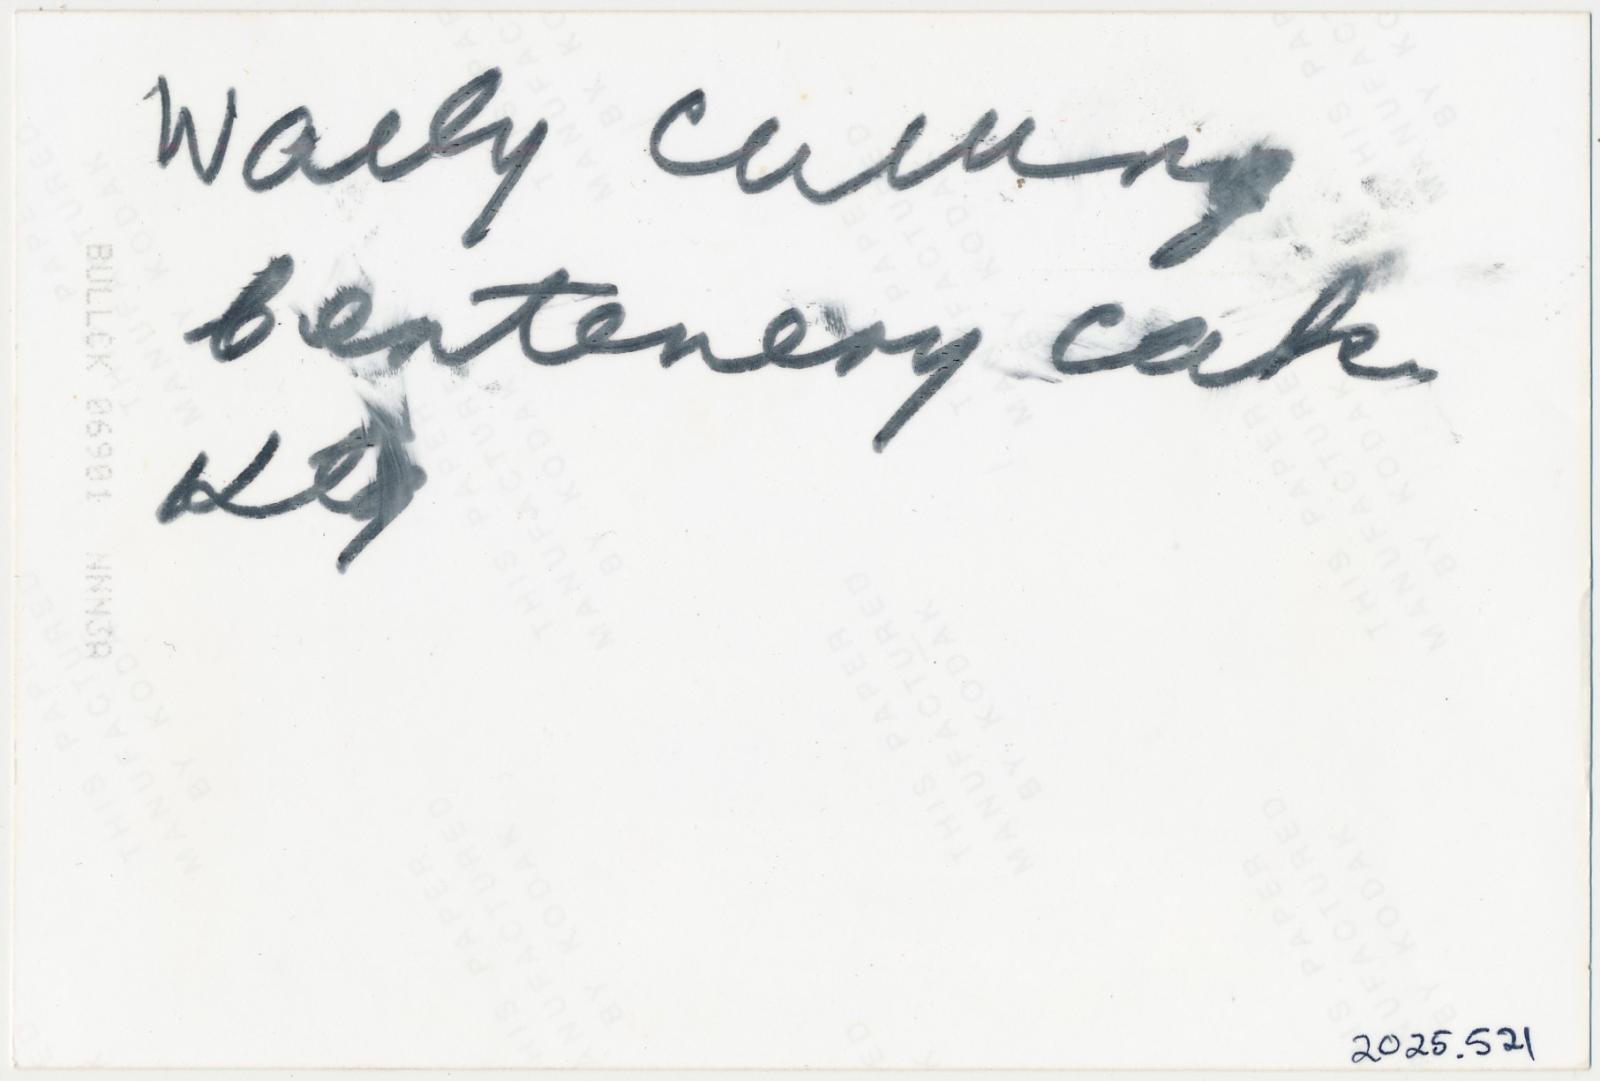 Wally Cutting
Centenery cake
BULLEK 06901 NNN3A
THIS PAPER
MANUFACTURED
BY KODAK
2025.521